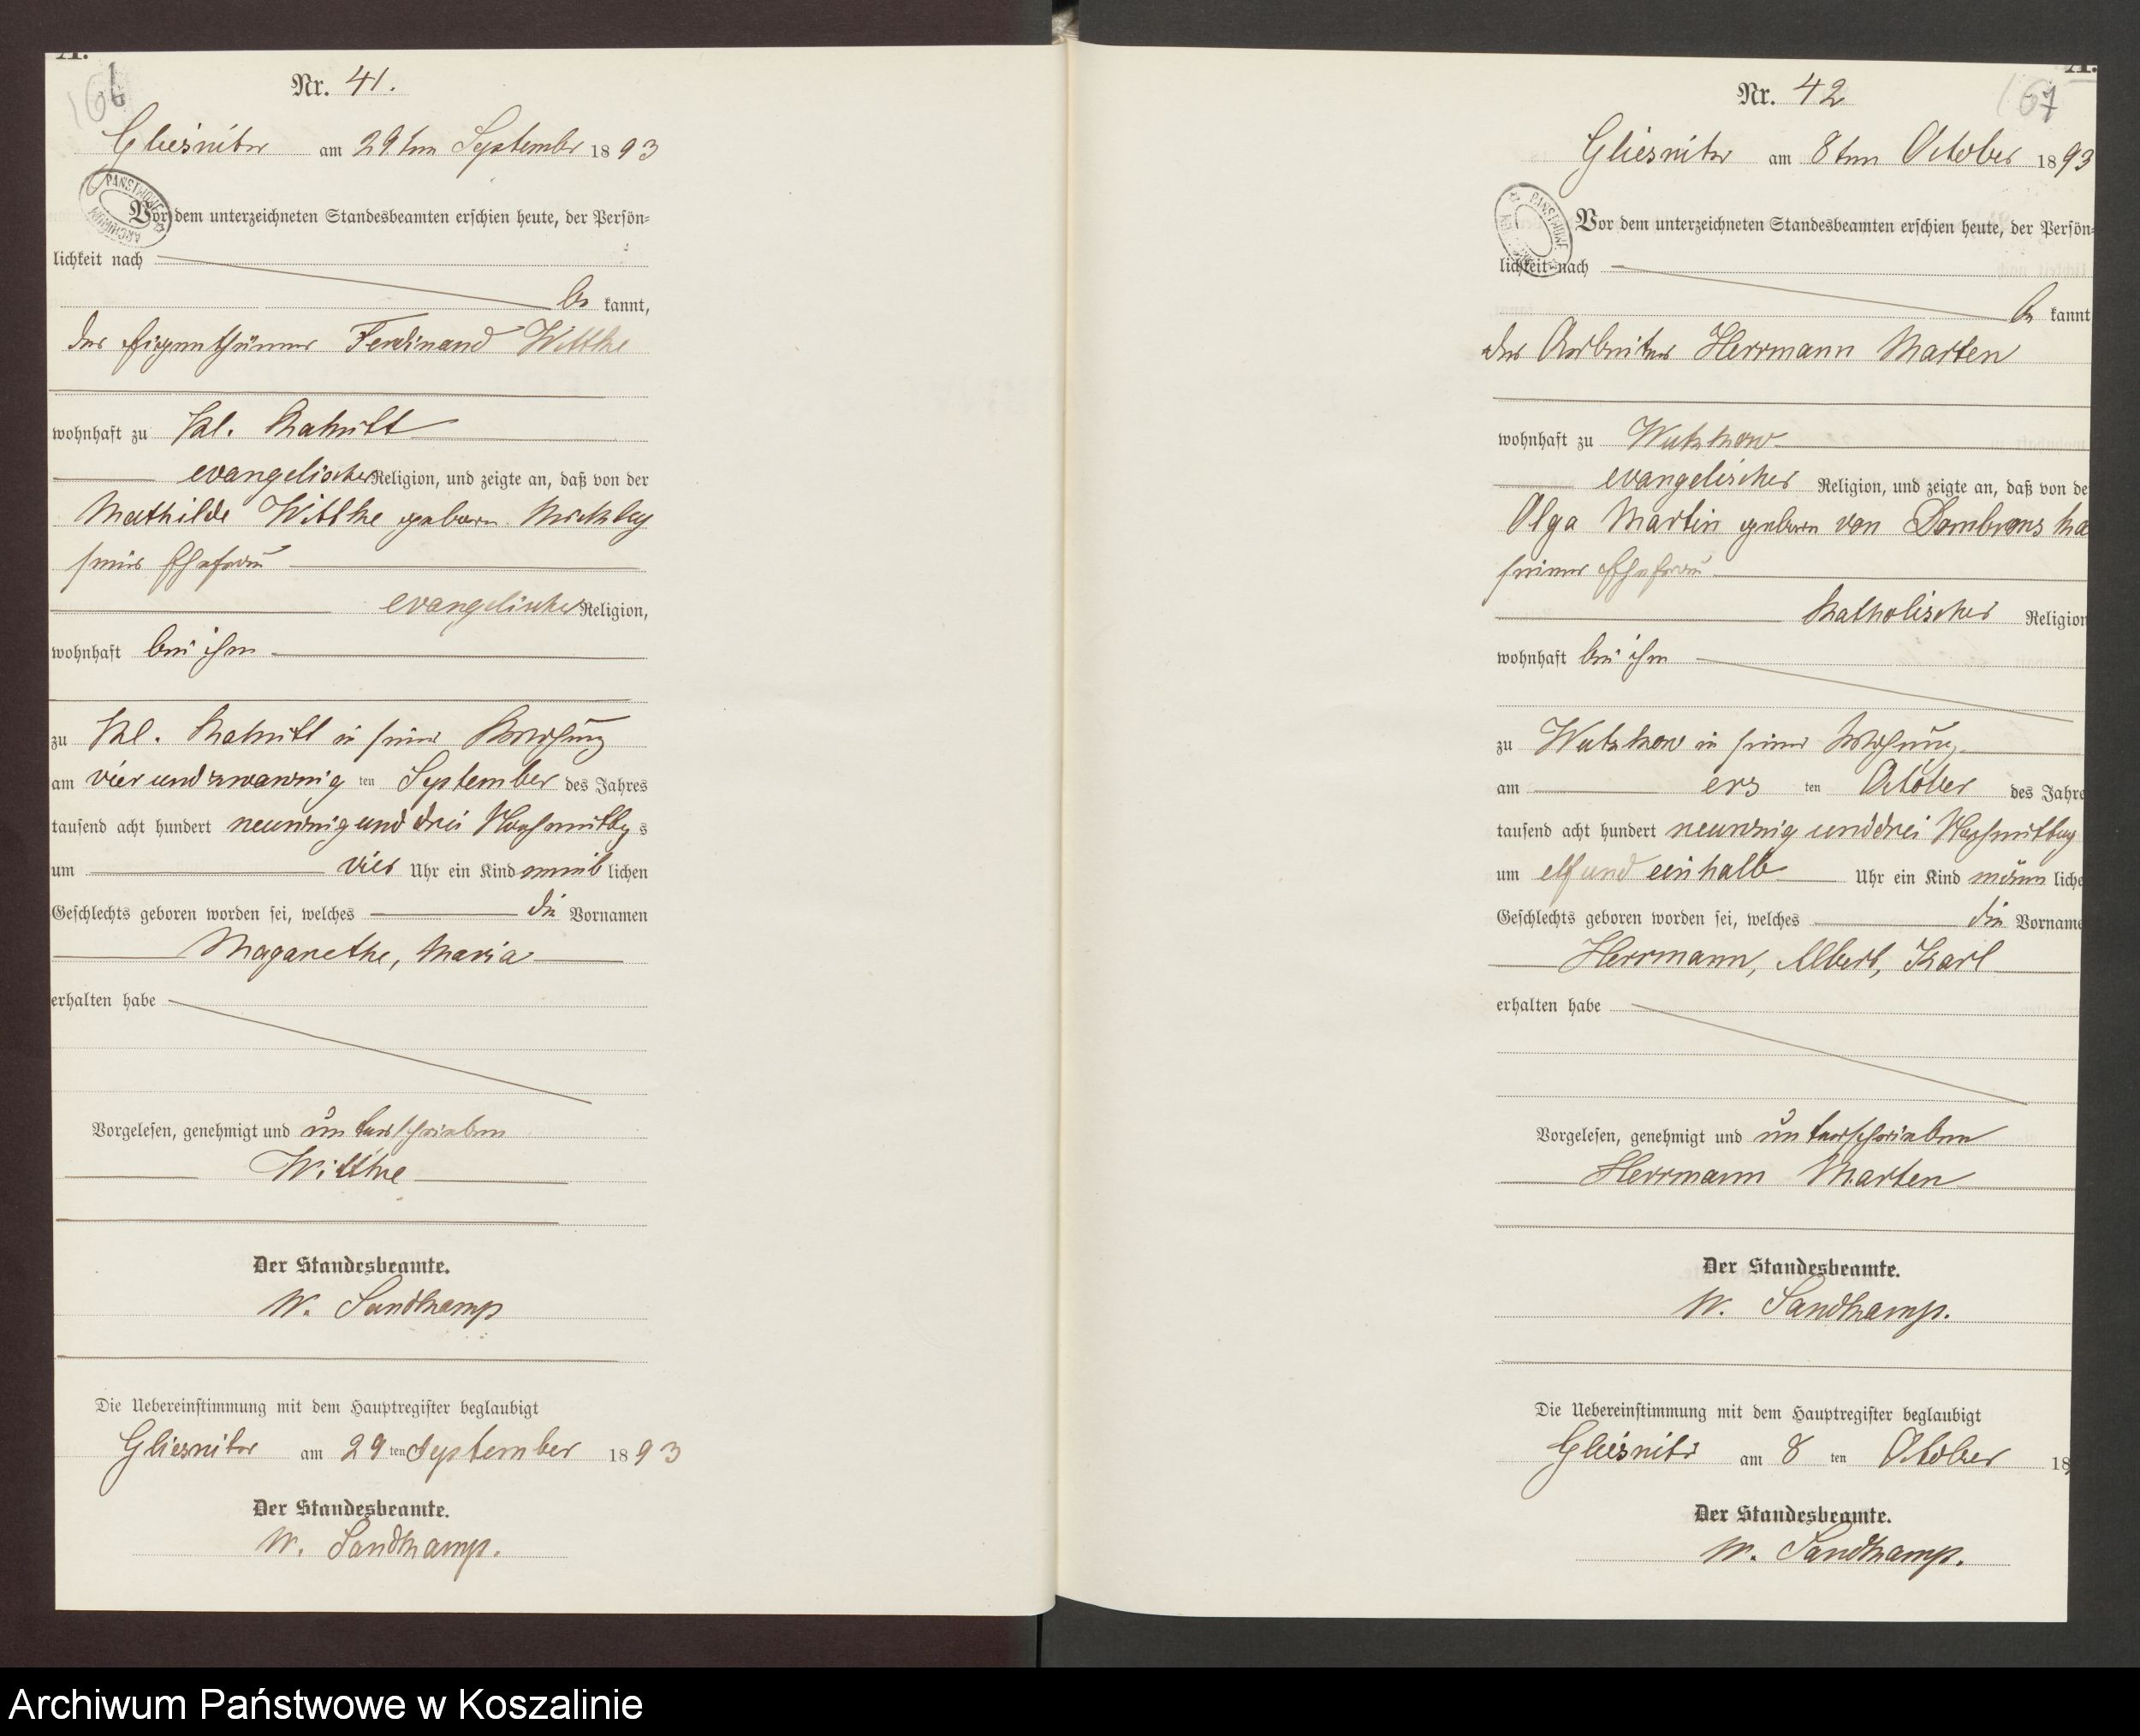 Nr. 41.
Gliesnitz am 29ten September 1893
Vor dem unterzeichneten Standesbeamten erschien heute, der Persön=
lichkeit nach
be kannt,
der Eigenthümer Ferdinand Witthe
wohnhaft zu Kl.
evangelischer Religion, und zeigte an, daß von der
Mathilde Witthe geboren
seiner Ehefrau
evangelischer Religion,
wohnhaft bei ihm
zu Kl. in seiner Wohnung
am vier und zwanzig ten September des Jahres
tausend acht hundert neunzig und drei Nachmittags
um vier Uhr ein Kind weib lichen
Geschlechts geboren worden sei, welches die Vornamen
Magarethe, Maria
erhalten habe
Vorgelesen, genehmigt und unterschrieben
Witthe
Der Standesbeamte.
W. Sandkamp
Die Uebereinstimmung mit dem Hauptregister beglaubigt
Gliesnitz am 29 ten September 1893
Der Standesbeamte.
W. Sandkamp.
Nr. 42
167
Gliesnitz am 8ten October 1893
Vor dem unterzeichneten Standesbeamten erschien heute, der Persön=
lichkeit nach
be kannt
der Arbeiter Herrmann Marten
wohnhaft zu Wutzkow
evangelischer Religion, und zeigte an, daß von de
Olga Martin geboren von Dombrowska
seiner Ehefrau
katholischer Religion
wohnhaft bei ihm
zu Wutzkow in seiner Wohnung
am ers ten October des Jahre
tausend acht hundert neunzig und drei Nachmittag
um elf und einhalb Uhr ein Kind männ liche
Geschlechts geboren worden sei, welches die Vorname
Herrmann, Albert, Karl
erhalten habe
Vorgelesen, genehmigt und unterschrieben
Herrmann Marten
Der Standesbeamte.
W. Sandkamp.
Die Uebereinstimmung mit dem Hauptregister beglaubigt
Gliesnitz am 8 ten October 18
Der Standesbeamte.
W. Sandkamp.
Archiwum Państwowe w Koszalinie